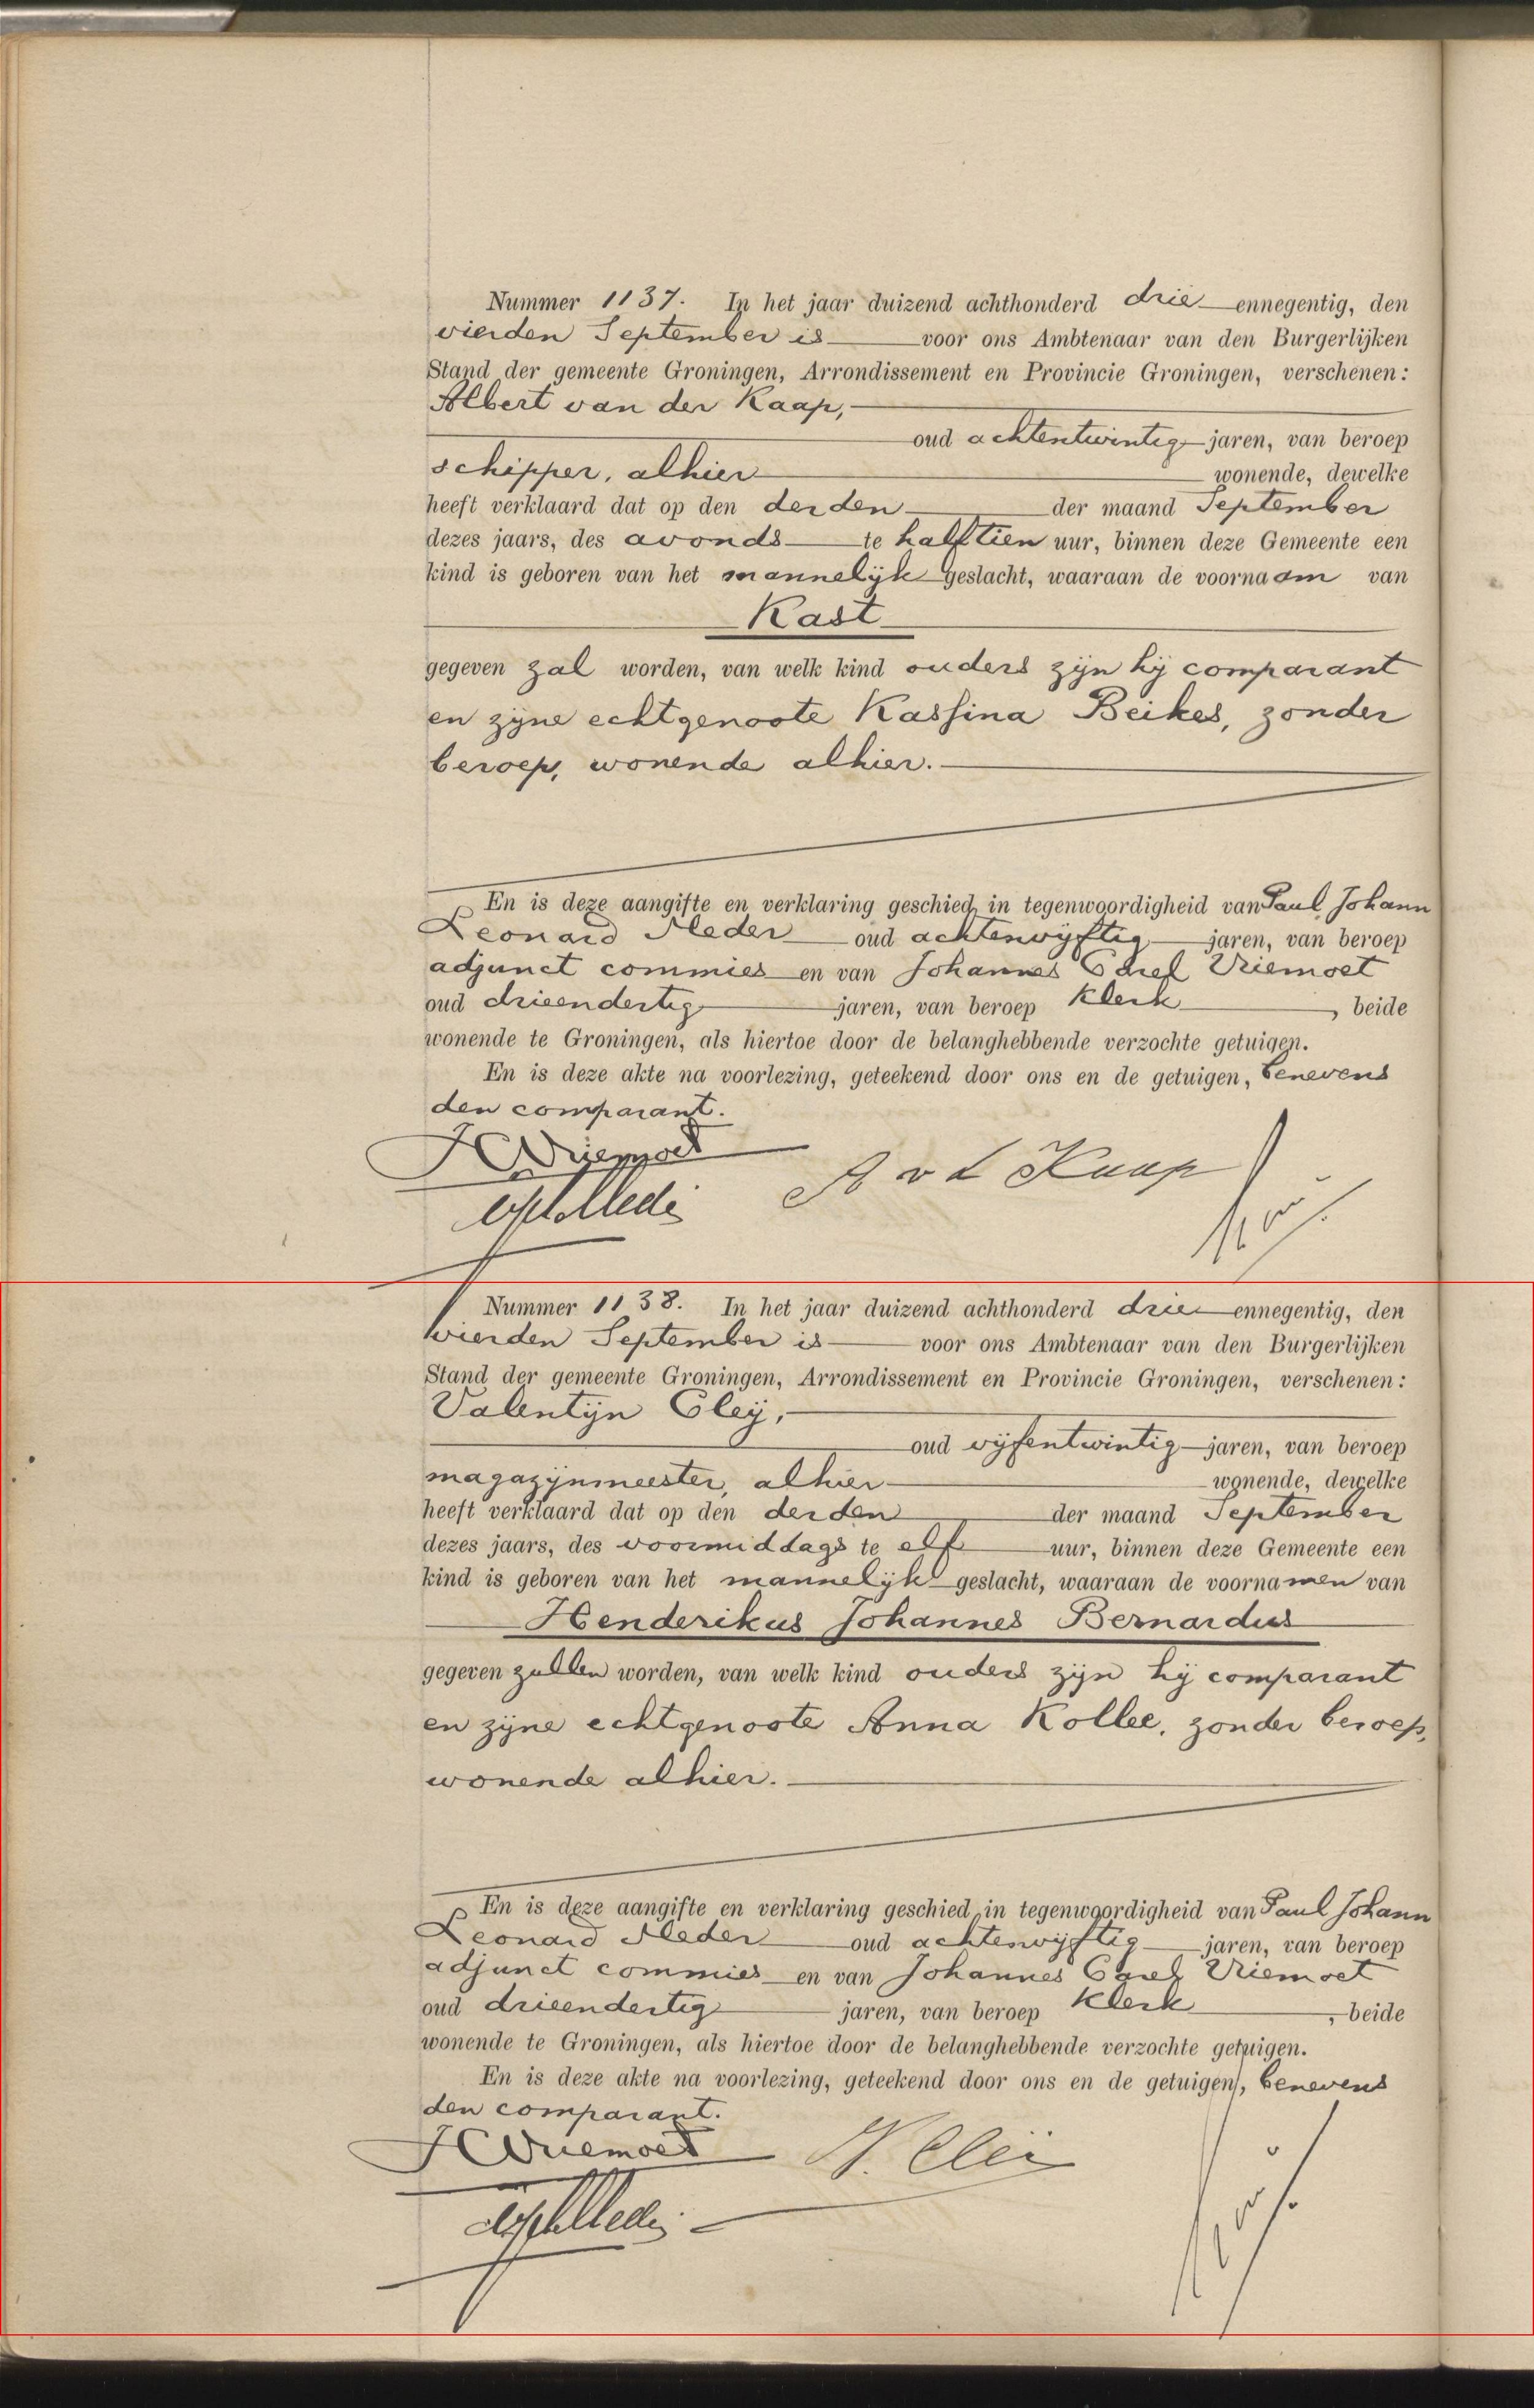 Nummer 1137. In het jaar duizend achthonderd drie ennegentig, den
vierden September is voor ons Ambtenaar van den Burgerlijken
Stand der gemeente Groningen, Arrondissement en Provincie Groningen, verschenen:
Albert van der Kaap,
oud achtentwintig jaren, van beroep
schipper, alhier wonende, dewelke
heeft verklaard dat op den derden der maand September
dezes jaars, des avonds te half tien uur, binnen deze Gemeente een
kind is geboren van het mannelijk geslacht, waaraan de voornaam van
Kast
gegeven zal worden, van welk kind ouders zijn hij comparant
en zijne echtgenoote Kassina Beikes, zonder
beroep, wonende alhier.
En is deze aangifte en verklaring geschied in tegenwoordigheid van Paul Johann
Leonard Meder oud achtenvijftig jaren, van beroep
adjunct commies en van Johannes Carel Vriemoet
oud drieendertig jaren, van beroep klerk, beide
wonende te Groningen, als hiertoe door de belanghebbende verzochte getuigen.
En is deze akte na voorlezing, geteekend door ons en de getuigen, benevens
den comparant.
JCVriemoet
A v d Kaap
Nummer 1138. In het jaar duizend achthonderd drie ennegentig, den
vierden September is voor ons Ambtenaar van den Burgerlijken
Stand der gemeente Groningen, Arrondissement en Provincie Groningen, verschenen:
Valentijn Cleij,
oud vijfentwintig jaren, van beroep
magazijnmeester, alhier wonende, dewelke
heeft verklaard dat op den derden der maand September
dezes jaars, des voormiddags te elf uur, binnen deze Gemeente een
kind is geboren van het mannelijk geslacht, waaraan de voornamen van
Henderikus Johannes Bernardus
gegeven zullen worden, van welk kind ouders zijn hij comparant
en zijne echtgenoote Anna Kollee, zonder beroep,
wonende alhier.
En is deze aangifte en verklaring geschied in tegenwoordigheid van Paul Johann
Leonard Meder oud achtenvijftig jaren, van beroep
adjunct commies en van Johannes Carel Vriemoet
oud drieendertig jaren, van beroep klerk, beide
wonende te Groningen, als hiertoe door de belanghebbende verzochte getuigen.
En is deze akte na voorlezing, geteekend door ons en de getuigen, benevens
den comparant.
JCVriemoet
V. Cleij